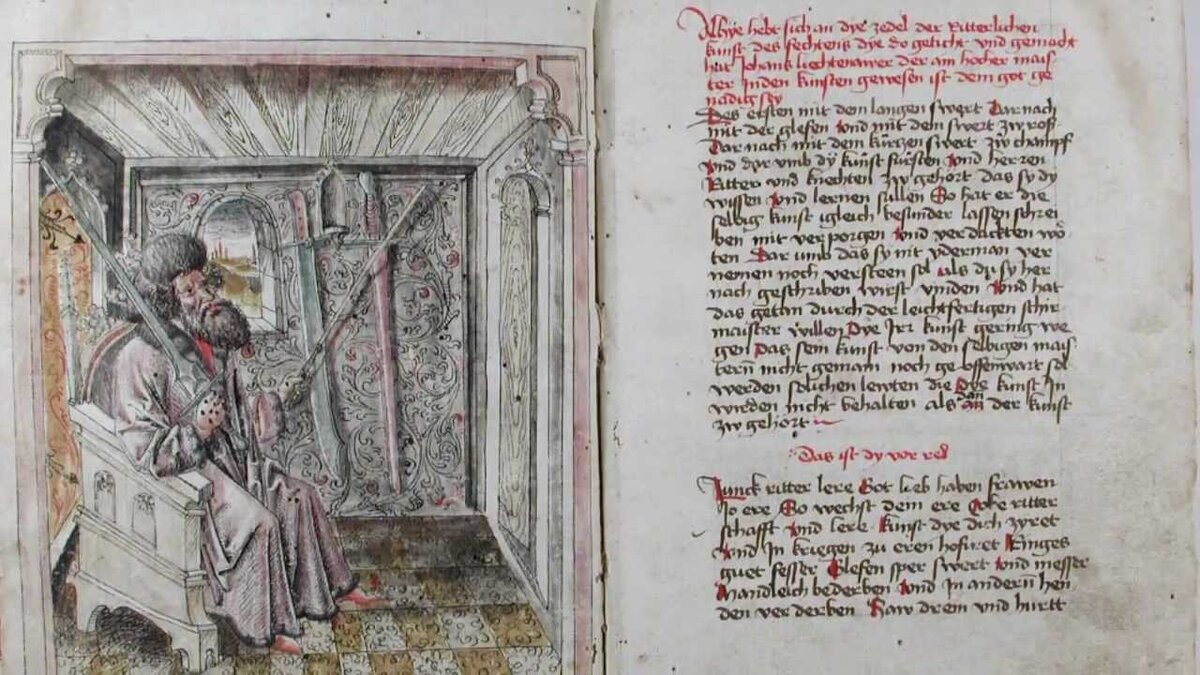 Alhye hebt sich an dye zedel der Ritterlichen
kunst des fechtens dye do geticht vnd gemacht
hat Johans liechtenawer der ain hocher mais
ter Inden künsten gewesen ist dem got ge
nadig sey
Des ersten mit dem langen swert Darnach
mit der glefen vnd mit dem swert zw roß
Darnach mit dem kürtzen swert zw champf
vnd dar vmb dy kunst fürsten vnd herren
Ritter vnd knechten zw gehört das sy dy
wissen vnd lernen sullen So hat er die
selbig kunst igleich besunder lassen schrei
ben mit verporgen vnd verdackten wö
ten Dar vmb das sy nit yderman ver
nemen noch versteen sol als dw sy her
nach geschriben wirst vinden vnd hat
das getan durch der leichtfertigen schir
maister willen Dye Irr kunst gering we
gen Das sein kunst von den selbigen mais
tern nicht gemain noch geoffenwart sol
werden solichen lewten die Dye kunst In
wirden nicht behalten als dan der kunst
zw gehört
Das ist dy vor red
Junck ritter lere Got lieb haben frawen
Jo ere So wechst dein ere vbe ritter
schafft vnd lere kunst dye dich zyret
vnd In kriegen zu eren hofiret Ringes
guet fesser Glefen sper swert vnd messer
Mandleich bederben vnd In andern hen
den verderben Haw drein vnd hurtt